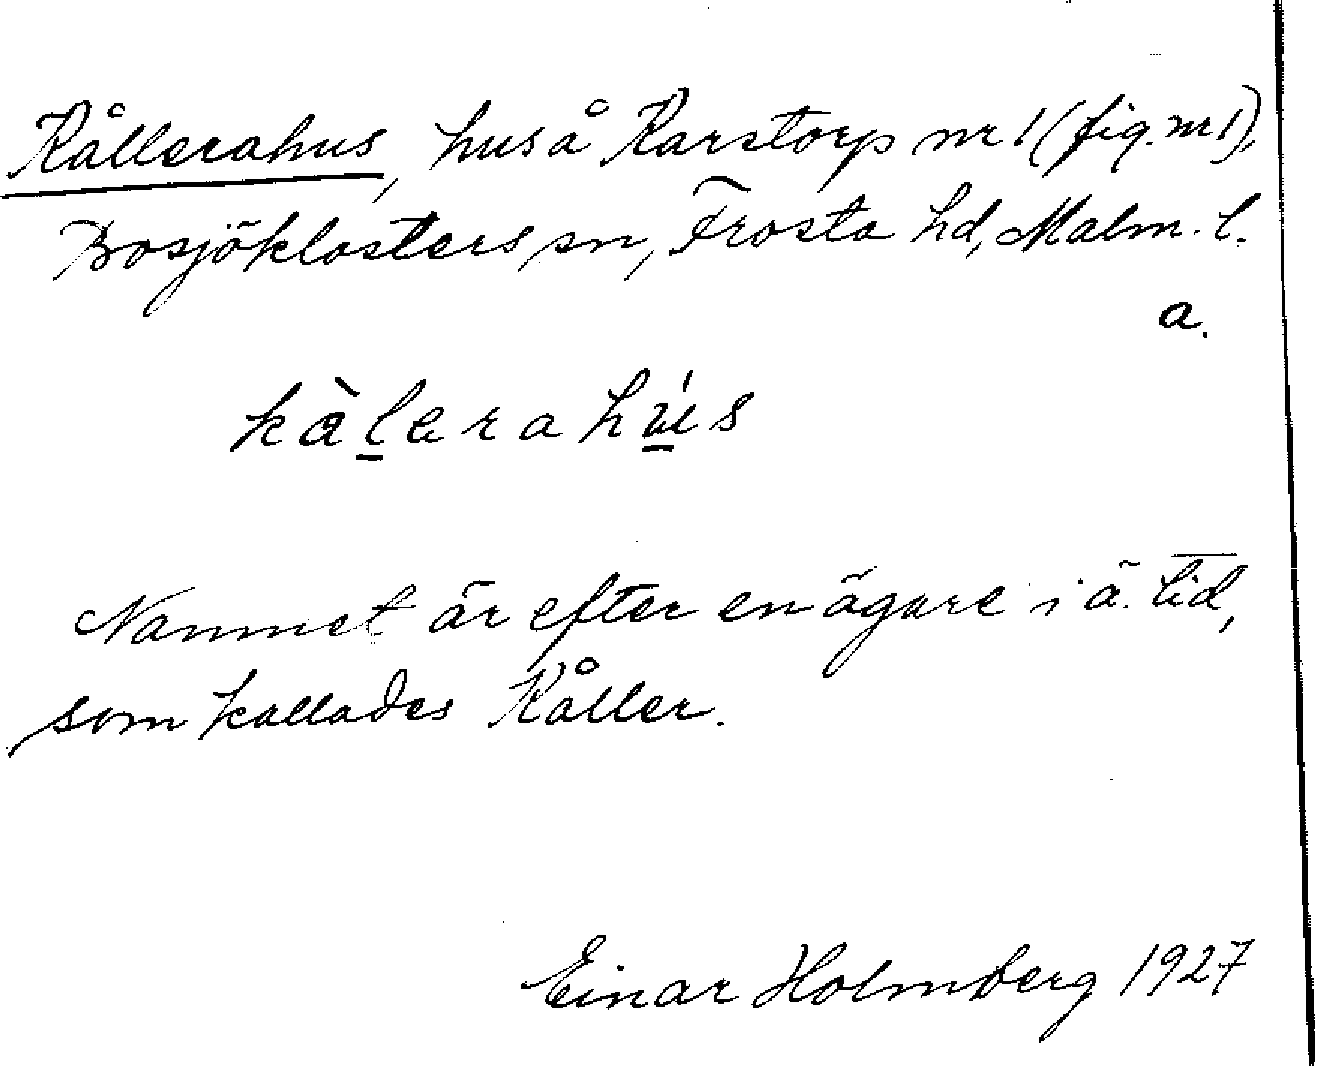 Kållerahus, hus å Karstorp nr 1 (fig. nr 1),
Bosjöklosters sn, Frosta hd, Malm. l.
a.
kàlerahús
Namnet är efter en ägare i ä. tid,
som kallades Kåller.
Einar Holmberg 1927